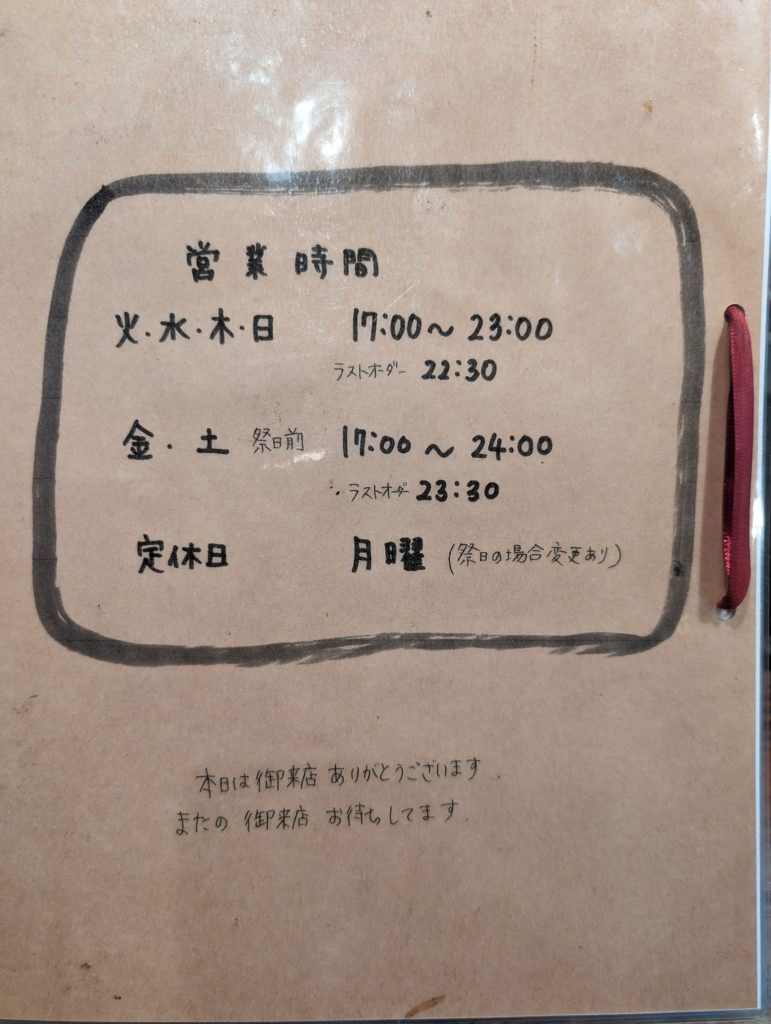 営業時間
火・水・木・日 17:00〜23:00
ラストオーダー 22:30
金・土 祭日前 17:00〜24:00
・ラストオーダー 23:30
定休日 月曜(祭日の場合変更あり)
本日は御来店ありがとうございます.
またの御来店お待ちしてます.